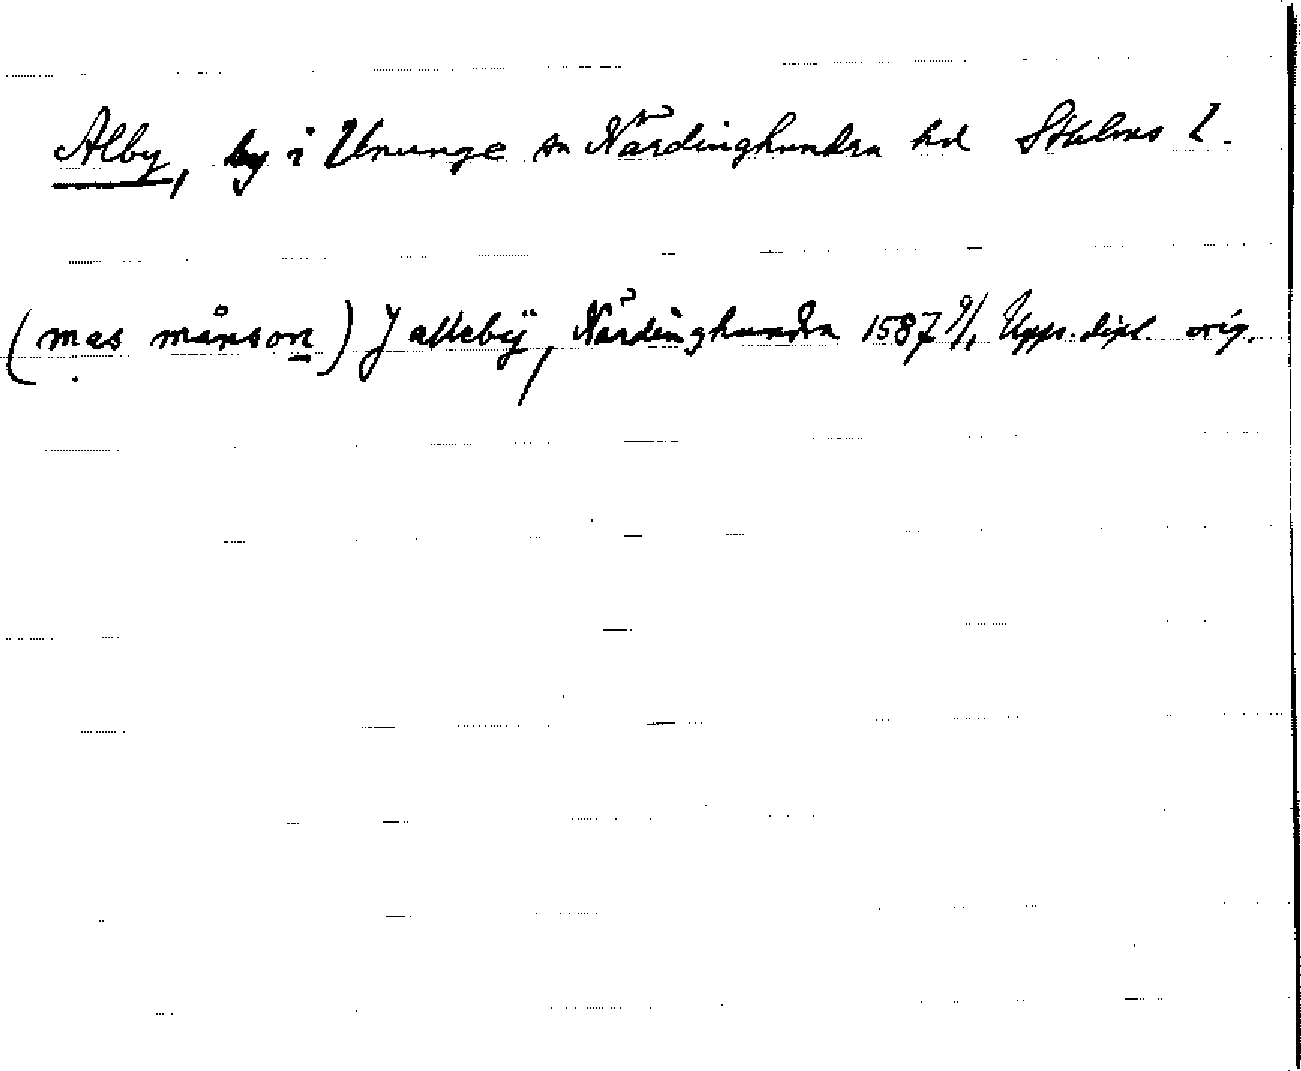 Alby, by i Ununge sn Närdinghundra hd Sthlms l.
(mas månson) J allebÿ, Närdinghundra 1587 9/1 Upps. dipl. orig.